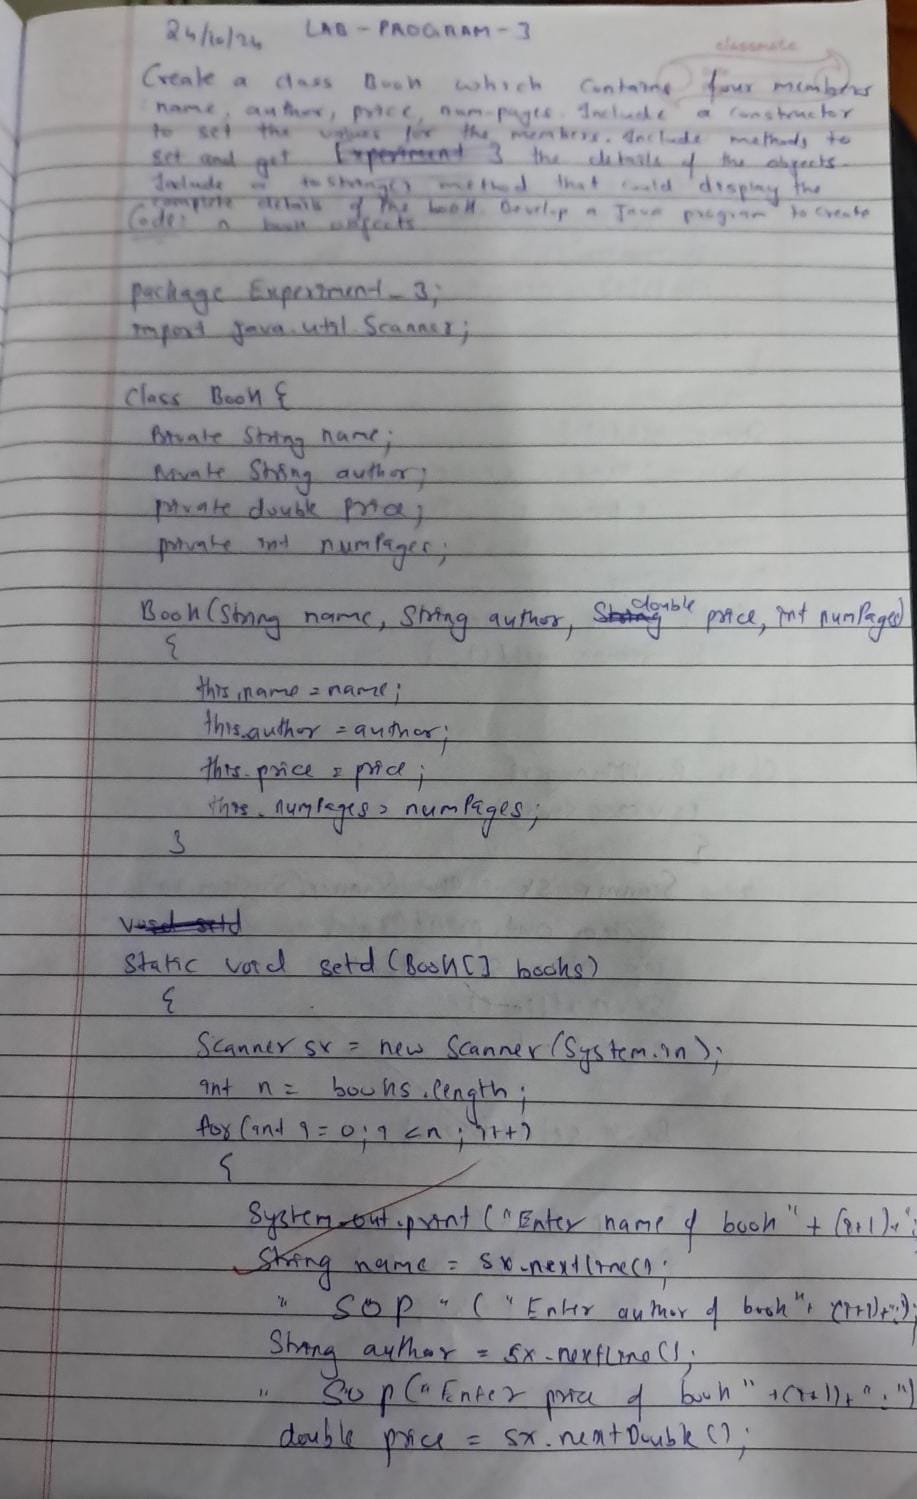 24/10/24 LAB-PROGRAM-3
classmate
Create a class Book which contains four members
name, author, price, num-pages. Include a constructor
to set the values for the members. Include methods to
set and get Experiment 3 the details of the objects.
Include a toString() method that could display the
complete details of the book. Develop a Java program to create
Code: n book objects
package Experiment_3;
import java.util.Scanner;
class Book {
private String name;
private String author;
private double price;
private int numPages;
Book(String name, String author, String double price, int numPages)
{
this.name = name;
this.author = author;
this.price = price;
this.numPages = numPages;
}
void setd
static void setd (Book[] books)
{
Scanner sx = new Scanner(System.in);
int n = books.length;
for (int i = 0; i < n; i++)
{
System.out.print ("Enter name of book" + (i+1)+":
String name = sx.nextLine();
" SOP " ("Enter author of book"+ (i+1)+":");
String author = sx.nextLine();
" SOP("Enter price of book" +(i+1)+":")
double price = sx.nextDouble();